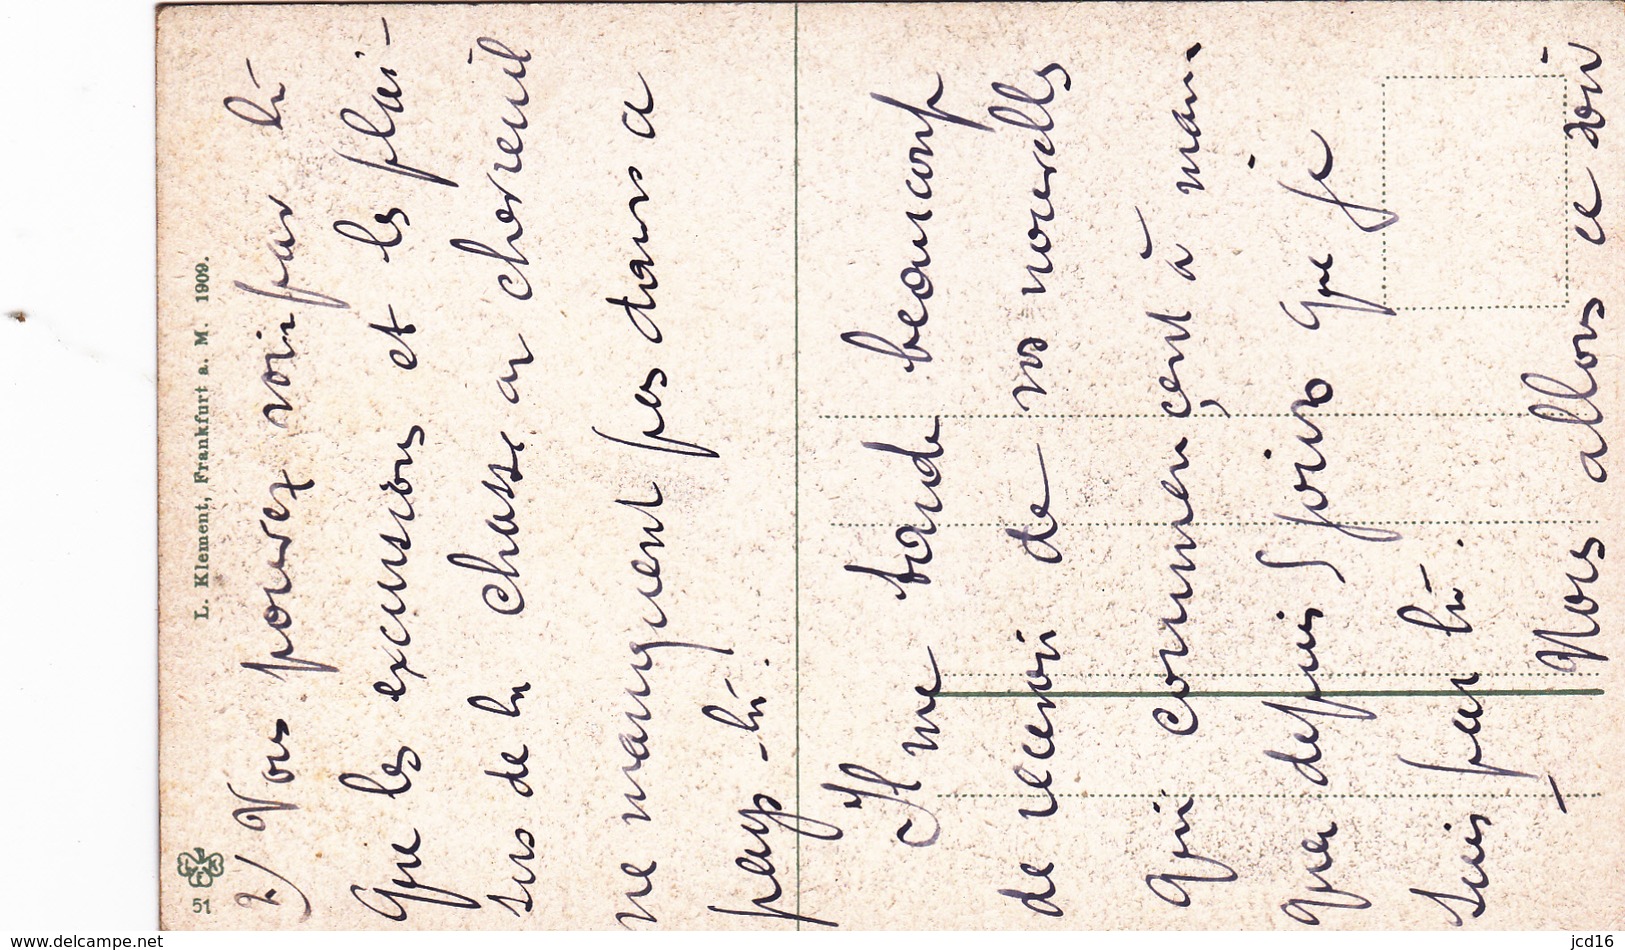 51
L. Klement, Frankfurt a. M. 1909.
2/ Vous pouvez voir par là
que les excursions et les plai-
sirs de la chasse au chevreuil
ne manquent pas dans ce
pays-là.
Il me tarde beaucoup
de recevoir de vos nouvelles
qui commencent à man
quer depuis 5 jours que je
suis par là.
– Nous allons ce soir
www.delcampe.net
jcd16